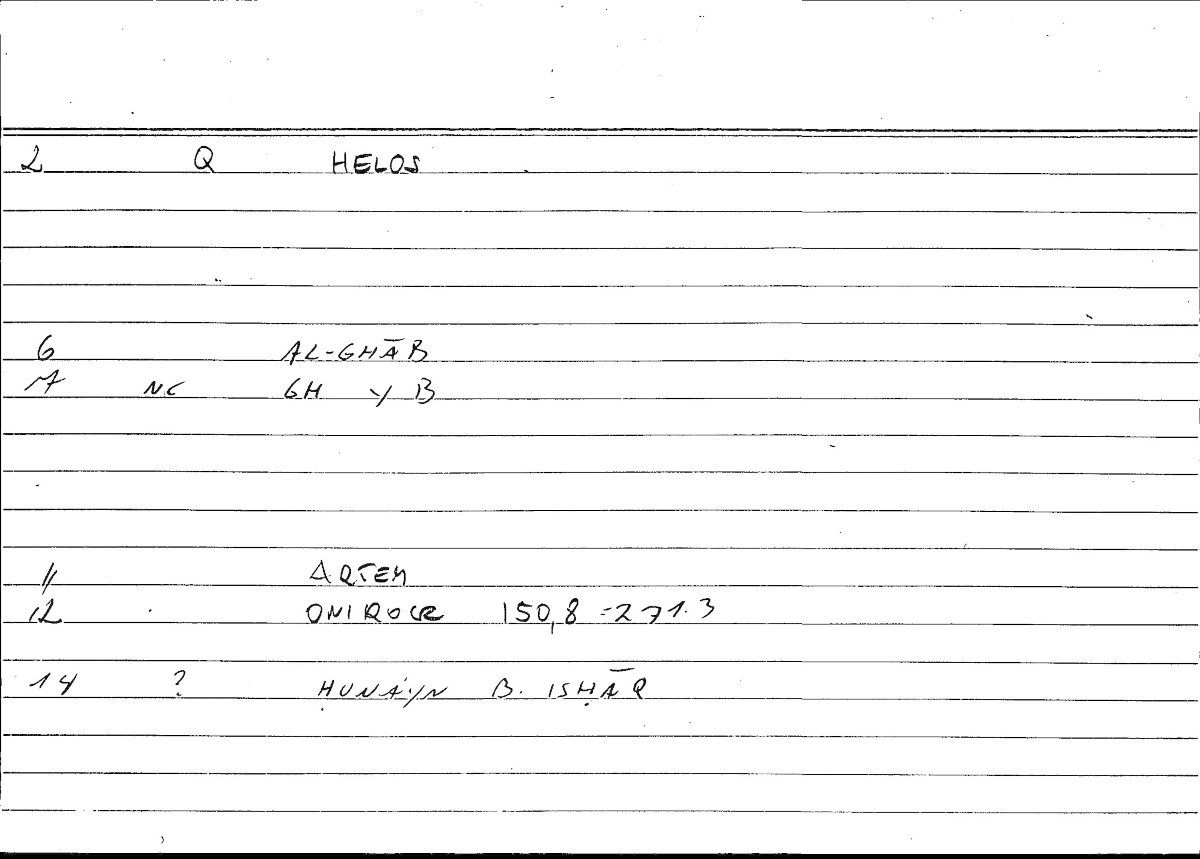 2 Q HELOS
6 AL-GHĀB
7 NC GH Y B
11 ARTEM
12 ONIROCR 150,8 = 271.3
14 ? ḤUNAYN B. ISḤĀQ